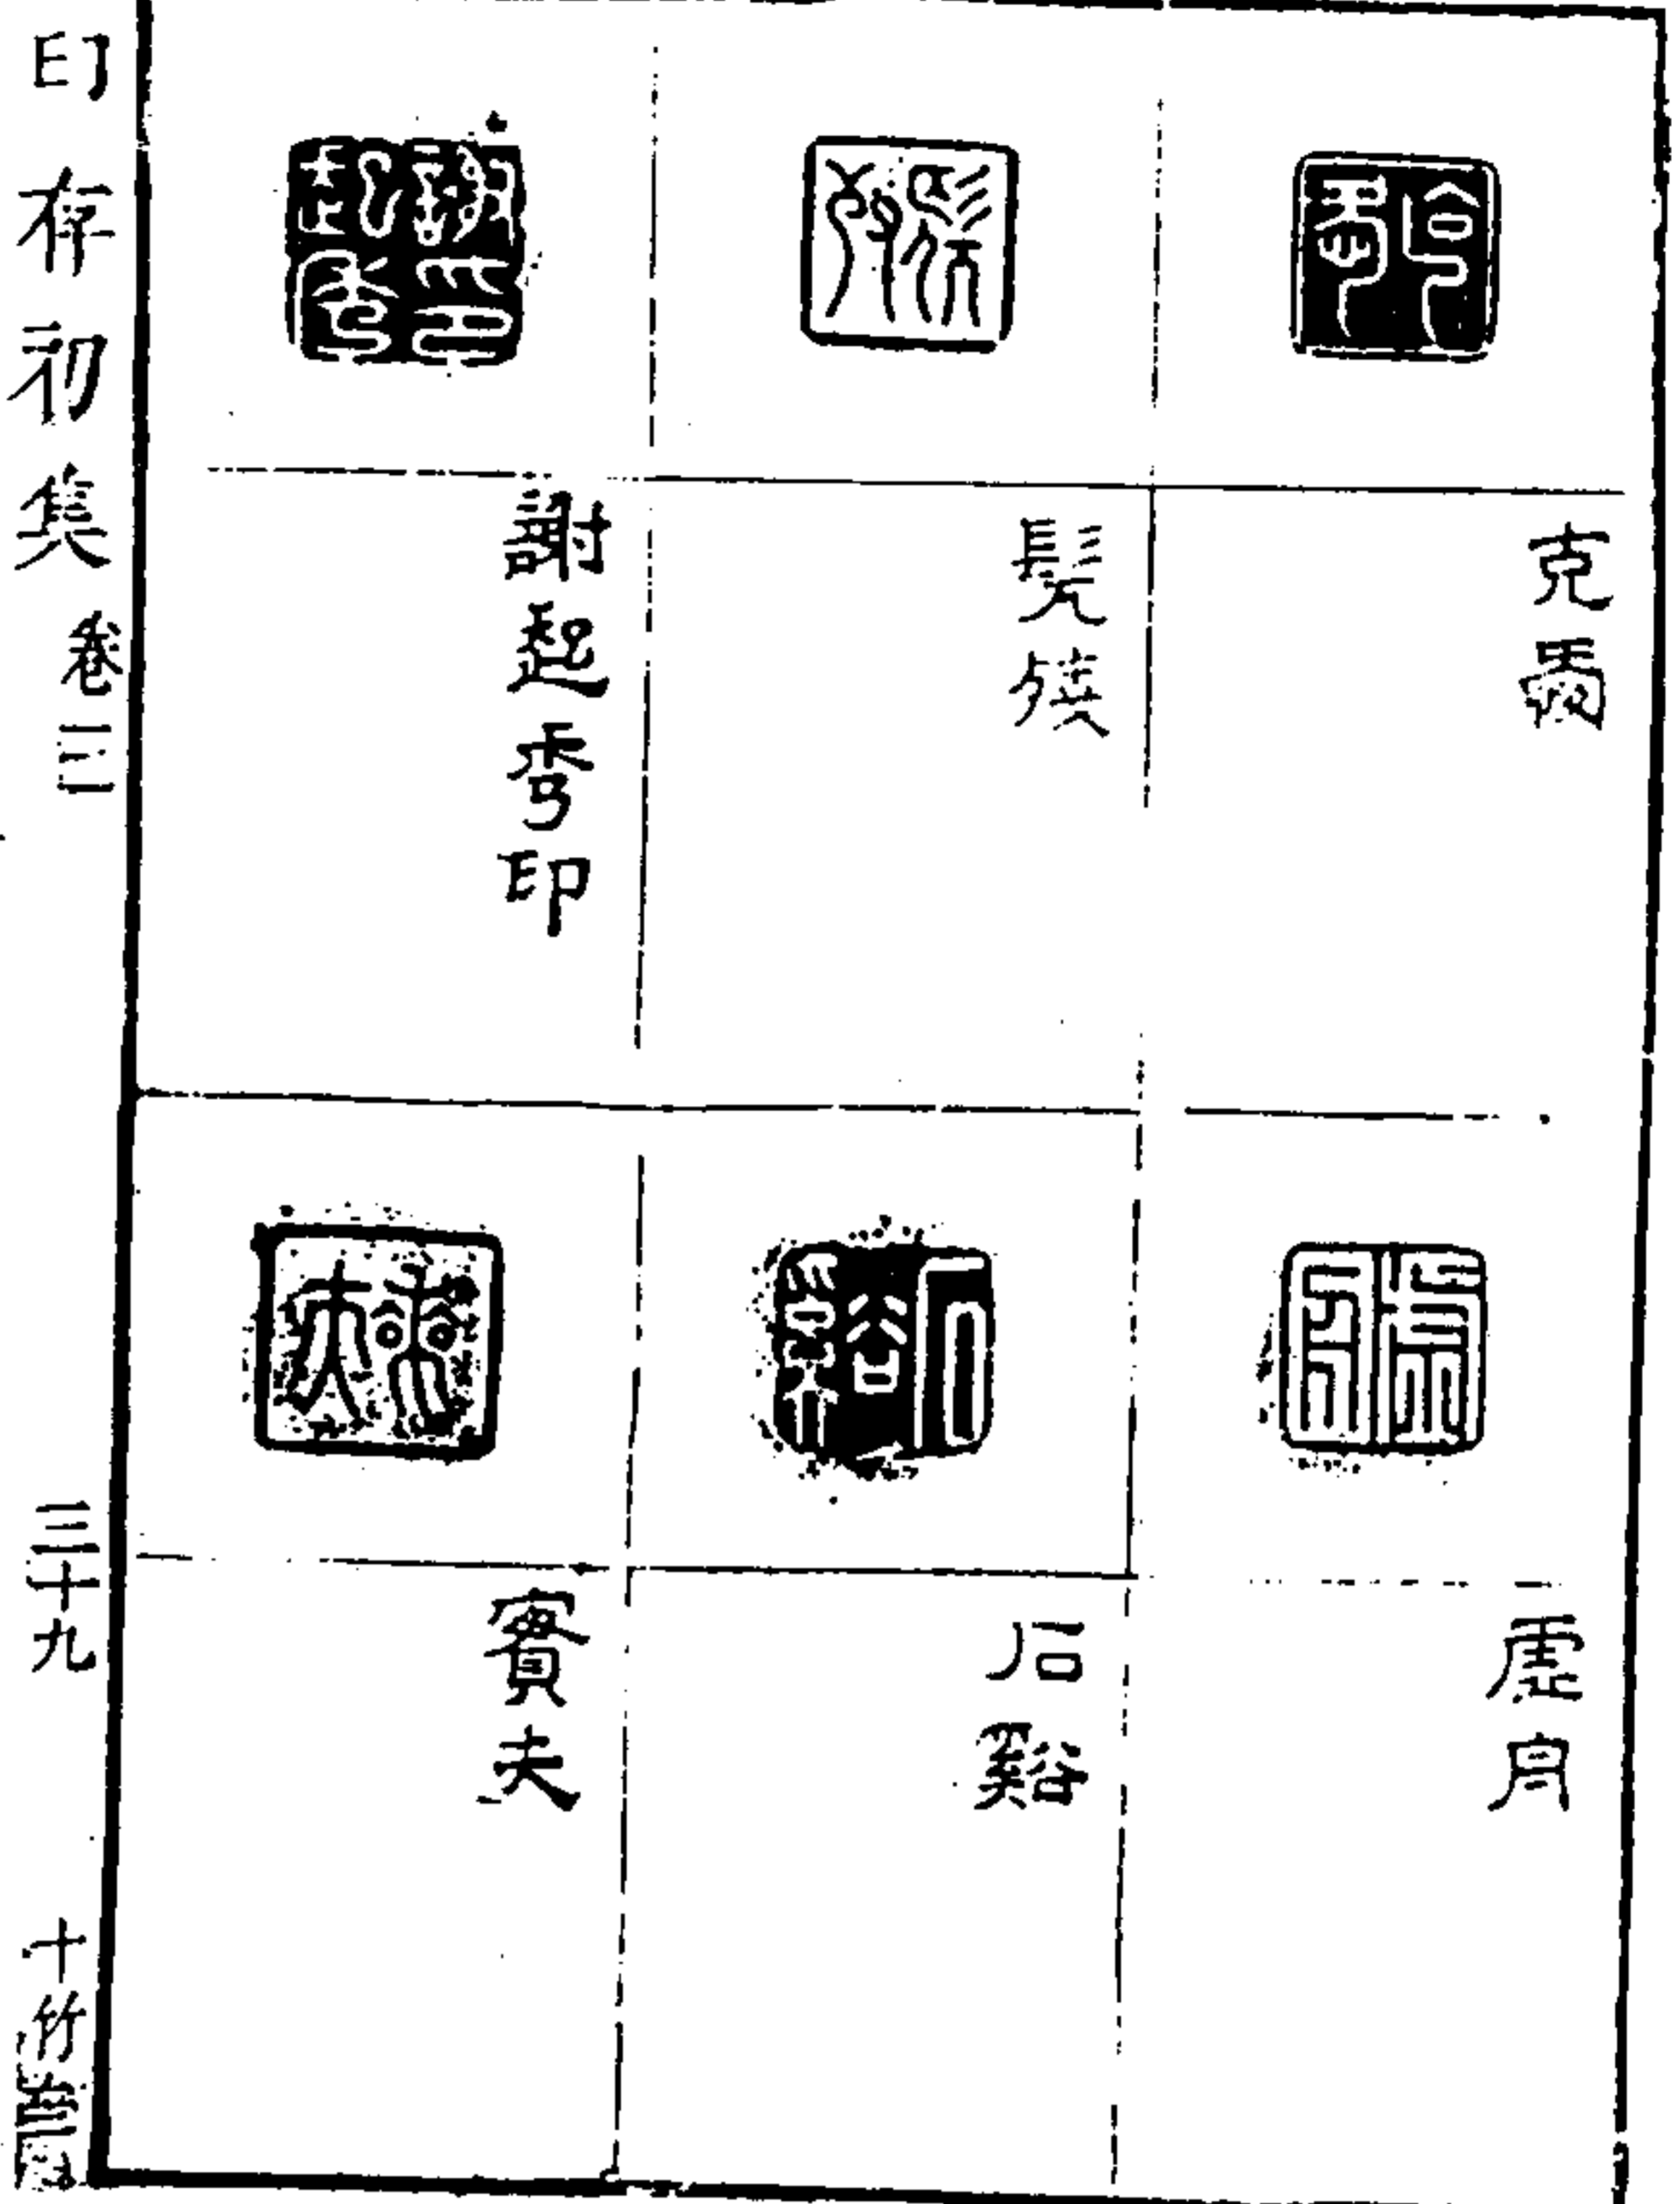 克
髡殘
謝起秀印
虛舟
石谿
實夫
印存初集 卷三
三十九
十竹齋